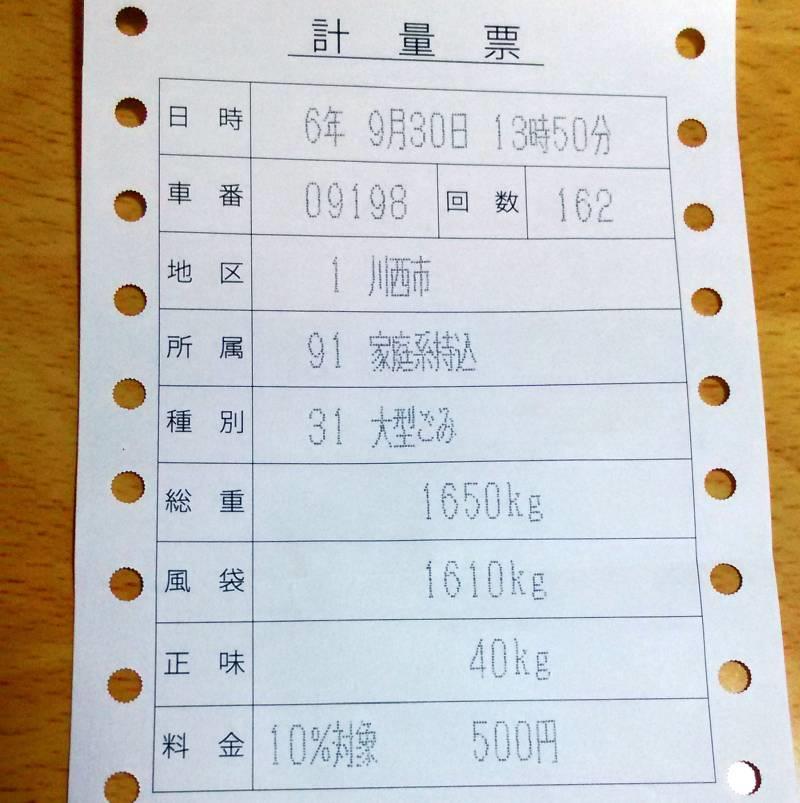 計量票
日時 6年 9月30日 13時50分
車番 09198 回数 162
地区 1 川西市
所属 91 家庭系持込
種別 31 大型ごみ
総重 1650kg
風袋 1610kg
正味 40kg
料金 10%対象 500円